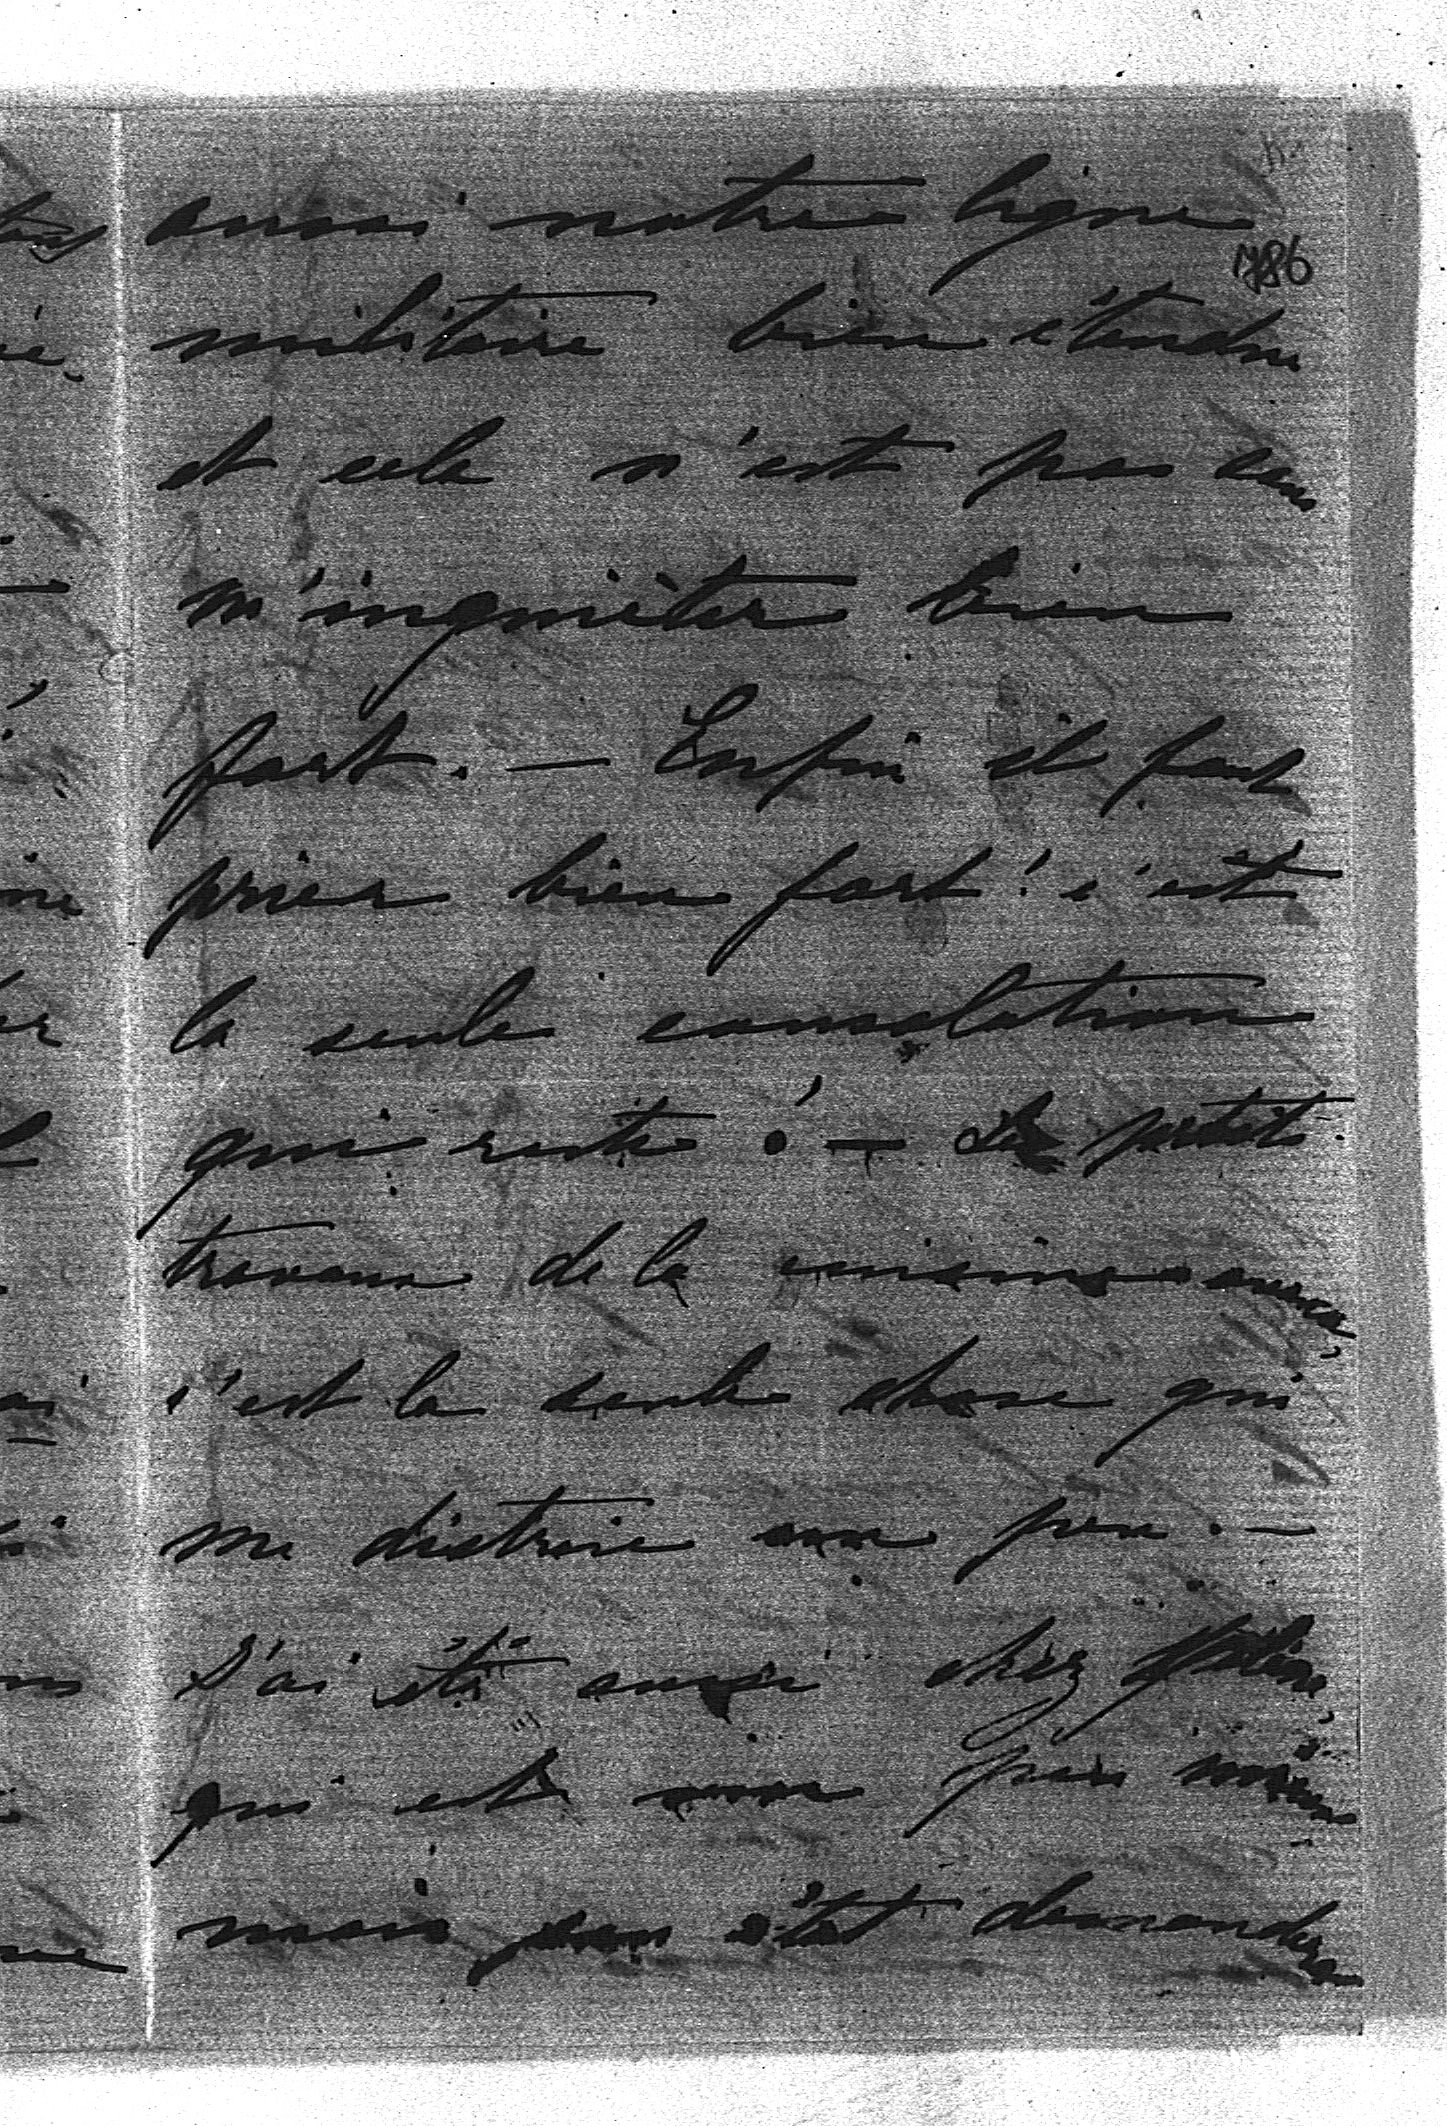 786
aussi notre ligne
militaire bien étendue
et cela n'est pas sans
m'inquièter bien
fort. — Enfin il faut
prier bien fort! c'est
la seule consolation
qui reste! — Les petits
travaux de la cuisine aussi,
c'est la seule chose qui
me distraie un peu. —
J'ai été aussi chez
qui est un peu mieux,
mais son état demandera